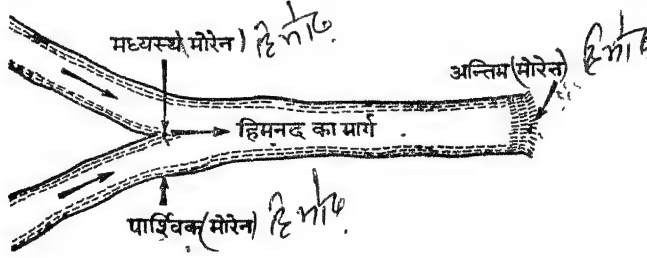 मध्यस्थ (मोरेन) हिमोढ
अन्तिम (मोरेन) हिमोढ
हिमनद का मार्ग
पार्श्विक (मोरेन) हिमोढ